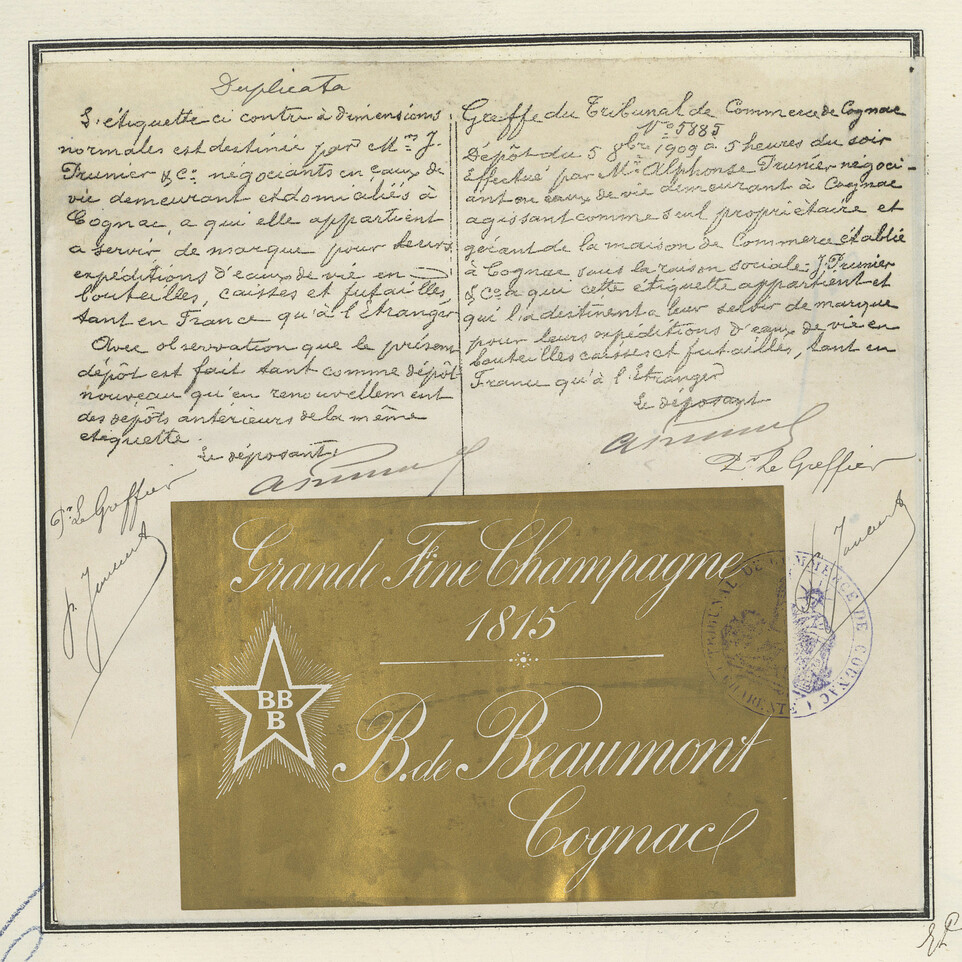 Duplicata
L'étiquette ci contre à dimensions
normales est destinée par Mrs J.
Prunier & Co négociants en eaux de
vie demeurant et domiciliés à
Cognac, a qui elle appartient
a servir de marque pour leurs
expéditions d'eaux de vie en
bouteilles, caisses et futailles,
tant en France qu'à l'Etranger
Avec observation que le présent
dépôt est fait tant comme dépôt
nouveau qu'en renouvellement
des dépôts antérieurs de la même
etiquette.
Le déposant,
Pr Le Greffier
Greffe du Tribunal de Commerce de Cognac
No 5885
Dépôt du 5 8bre 1909 à 5 heures du soir
Effectué par Mr Alphonse Prunier négoci-
ant en eaux de vie demeurant à Cognac
agissant comme seul propriètaire et
gérant de la maison de Commerce établie
à Cognac sous la raison sociale: J. Prunier
& Co a qui cette étiquette appartient et
qui l'a destinent a leur servir de marque
pour leurs expéditions d'eaux de vie en
bouteilles caisses et futailles, tant en
France qu'à l'Etranger
Le déposant
Pr Le Greffier
Grande Fine Champagne
1815
BB
B
B. de Beaumont
Cognac
TRIBUNAL DE COMMERCE DE COGNAC
(CHARENTE)